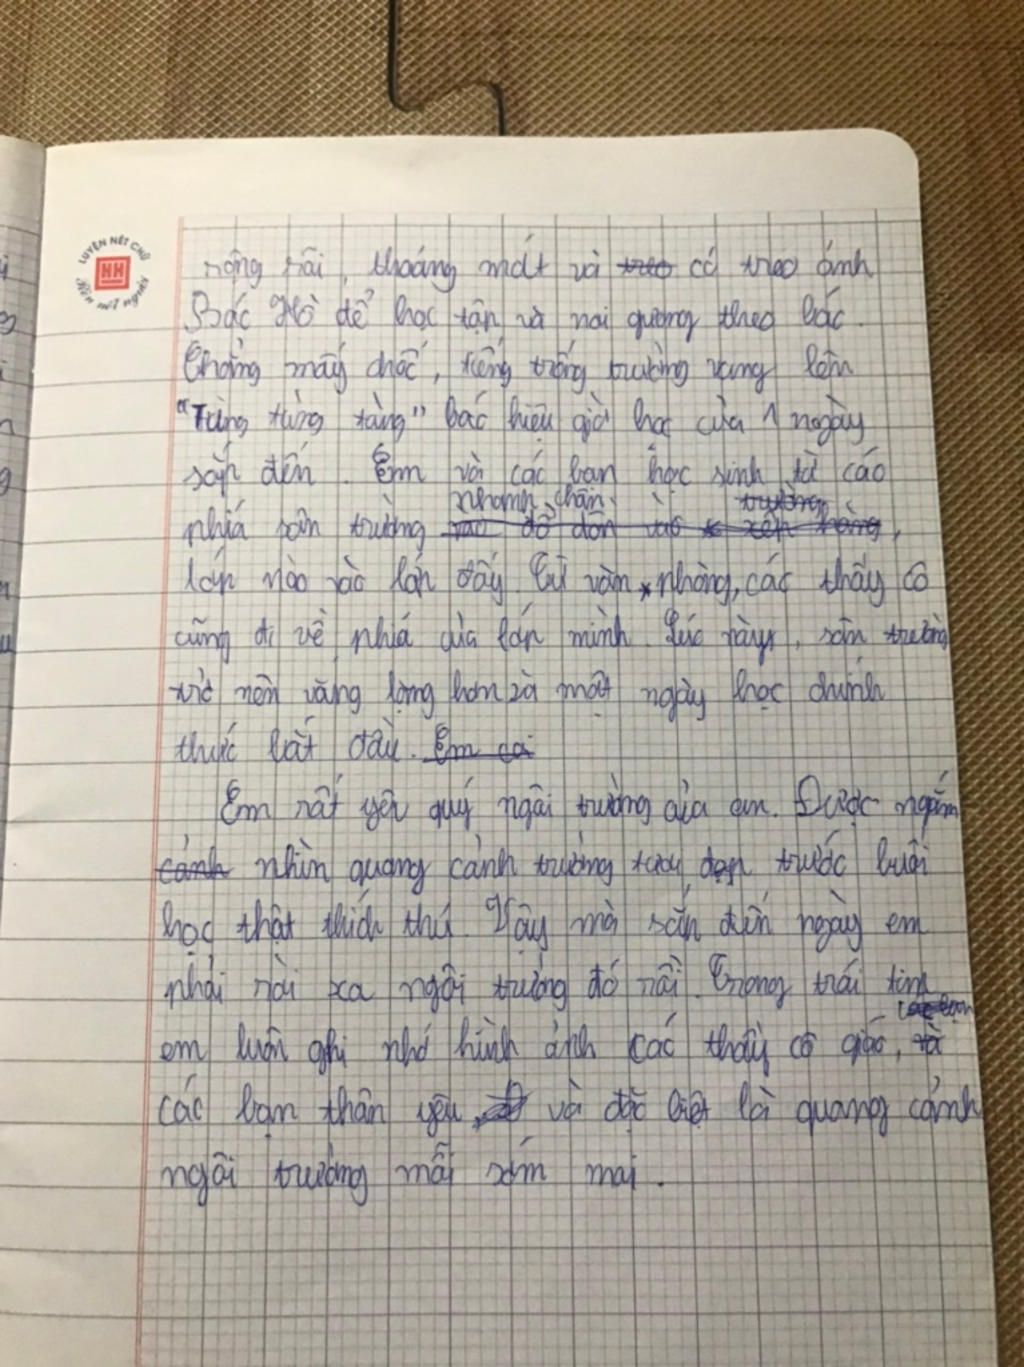 LUYỆN NÉT CHỮ
HH
Rèn nết người
rộng rãi, thoáng mát và treo có treo ảnh
Bác Hồ để học tận và noi gương theo bác.
Chẳng mấy chốc, tiếng trống trường vang lên
"Tùng tùng tùng" bác hiệu giờ học của 1 ngày
sắp đến. Em và các bạn học sinh từ các
nhanh chân trường
nhiá sân trường đổ dồn vào xếp hàng,
lớp nào vào lớp đấy. Từ văn phòng, các thầy cô
cũng đi về phiá của lớp mình. Lúc này, sân trường
trở nên vắng lặng hơn và một ngày học chính
thức bắt đầu. Em coi
Em rất yêu quý ngôi trường của em. Được ngắm
cảnh nhìn quang cảnh trường tươi đẹp trước buổi
học thật thích thú. Vậy mà sắp đến ngày em
phải rời xa ngôi trường đó rồi. Trong trái tim
em luôn ghi nhớ hình ảnh các thầy cô giáo, và
các bạn thân yêu và đặc biệt là quang cảnh
ngôi trường mỗi sớm mai.